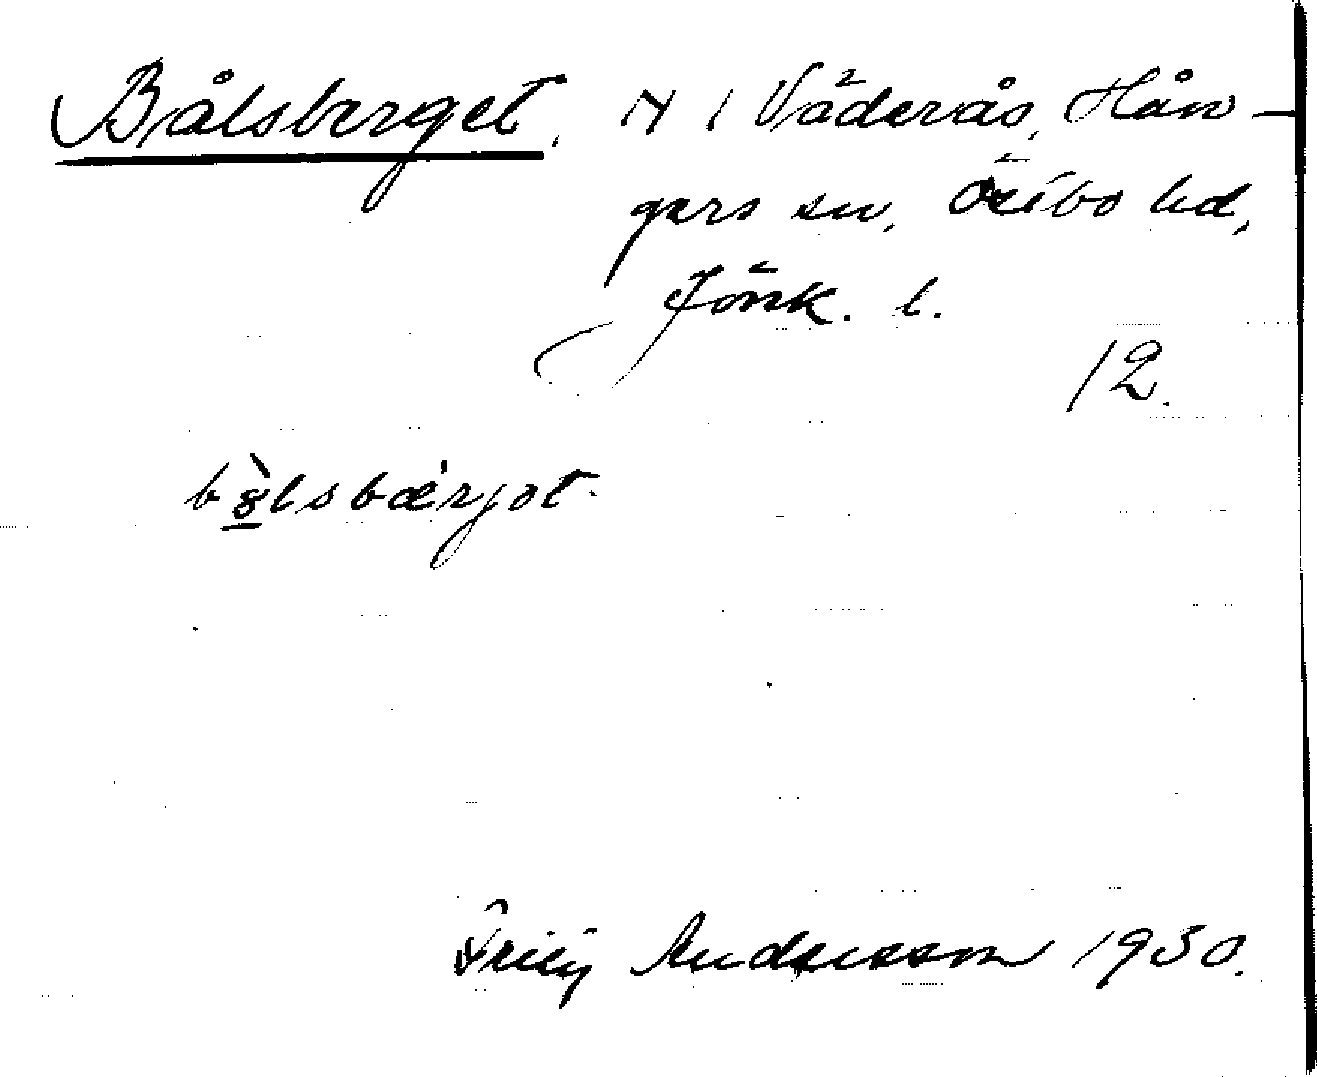 Bålsberget, N 1 Väderås, Hån-
gers sn, Östbo hd,
Jönk. l.
12.
bȣ̀lsbær̍jət.
Andersson 1930.